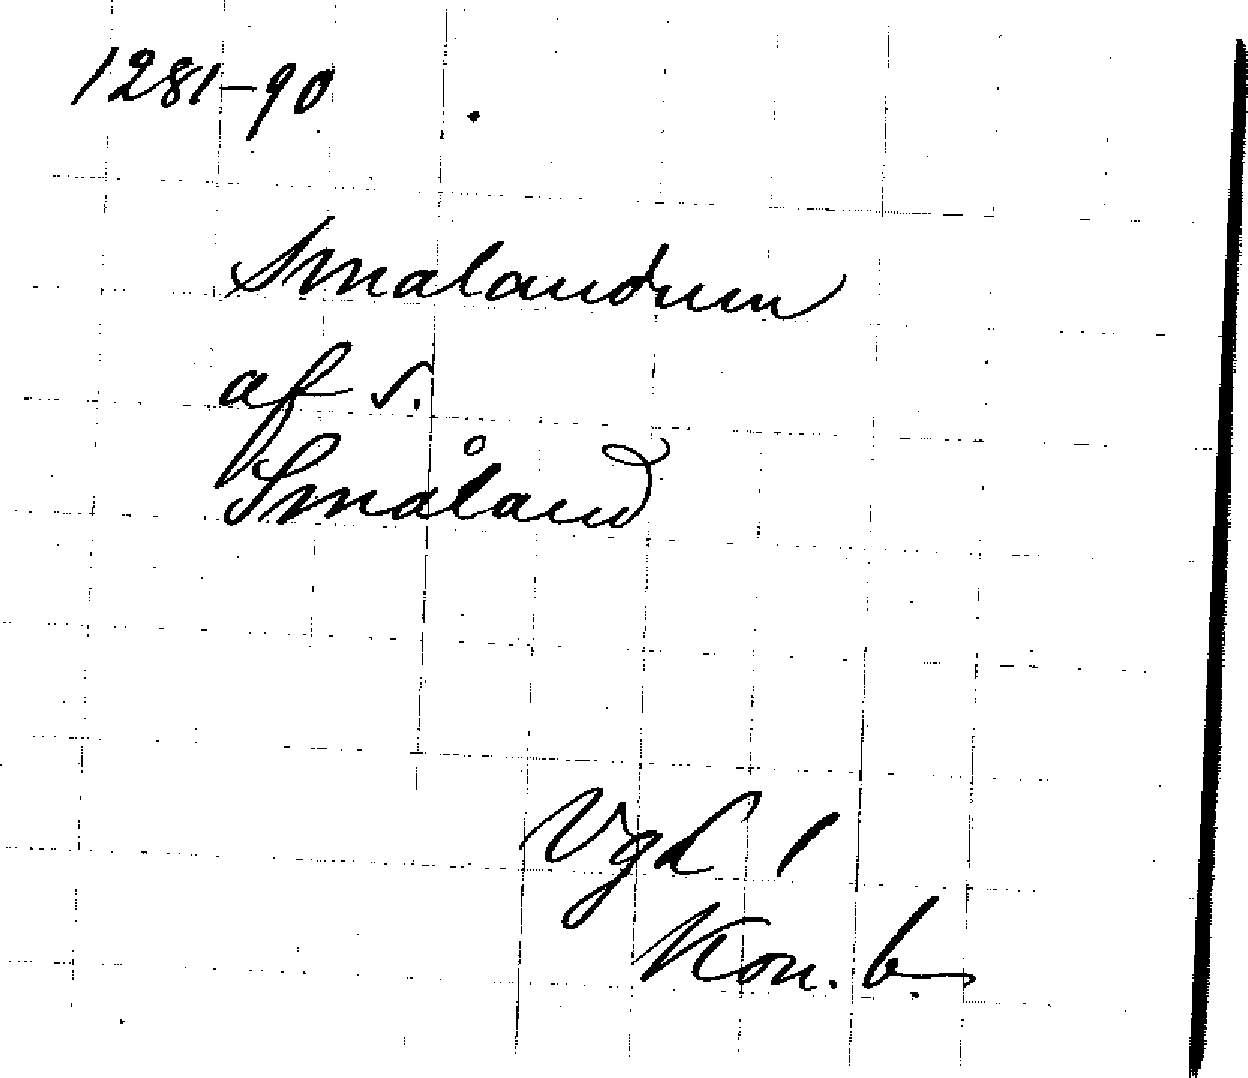 1281-90
Smalandum
af S.
Småland
VgL 1
Kon. b.